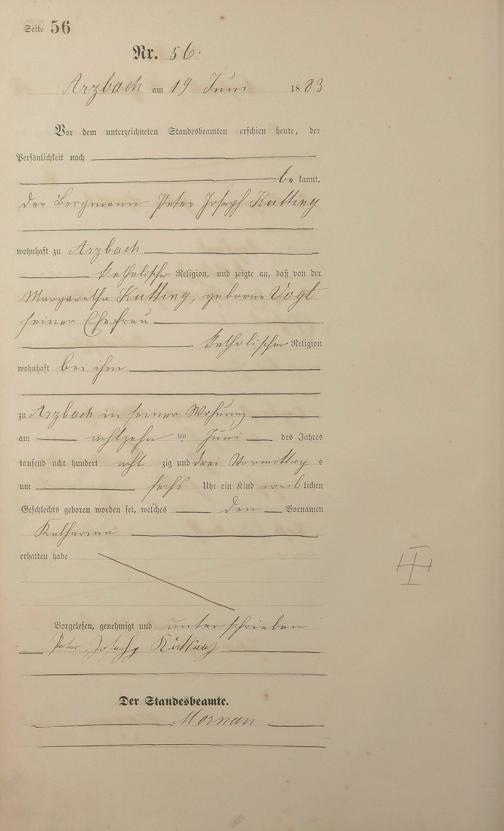 Seite 56
Nr. 56.
Arzbach am 19 Juni 1883
Vor dem unterzeichneten Standesbeamten erschien heute, der
Persönlichkeit nach
be kannt,
der Bergmann Peter Joseph Kutting
wohnhaft zu Arzbach
katholischer Religion, und zeigte an, daß von der
Margaretha Kutting, geborne Vogt
seiner Ehefrau
katholischer Religion
wohnhaft bei ihm
zu Arzbach in seiner Wohnung
am achtzehn ten Juni des Jahres
tausend acht hundert acht zig und drei Vormittag s
um sechs Uhr ein Kind weib lichen
Geschlechts geboren worden sei, welches den Vornamen
Katharina
erhalten habe
Vorgelesen, genehmigt und unterschrieben
Peter Joseph Kutting
Der Standesbeamte.